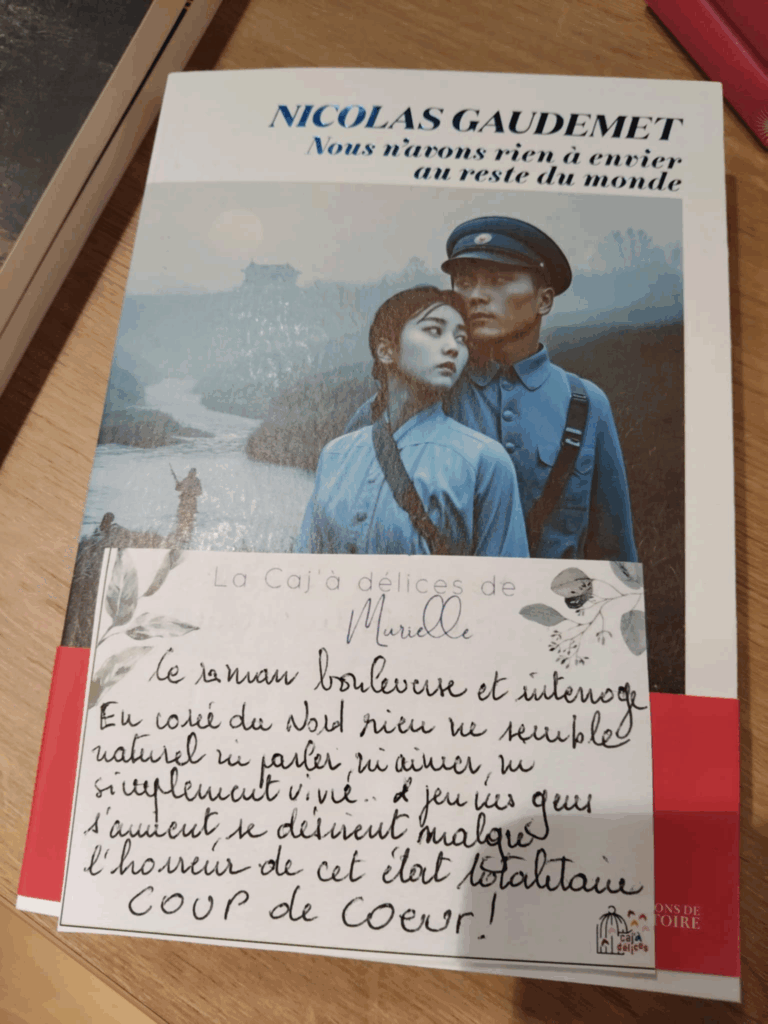 NICOLAS GAUDEMET
Nous n'avons rien à envier
au reste du monde
La Caj'à délices de
Murielle
Ce roman bouleverse et interroge
En corée du Nord rien ne semble
naturel ni parler, ni aimer, ni
simplement vivre.. 2 jeunes gens
s'aiment, se désirent malgré
l'horreur de cet état totalitaire
COUP de COEUR!
ONS DE
TOIRE
caj'à
délices